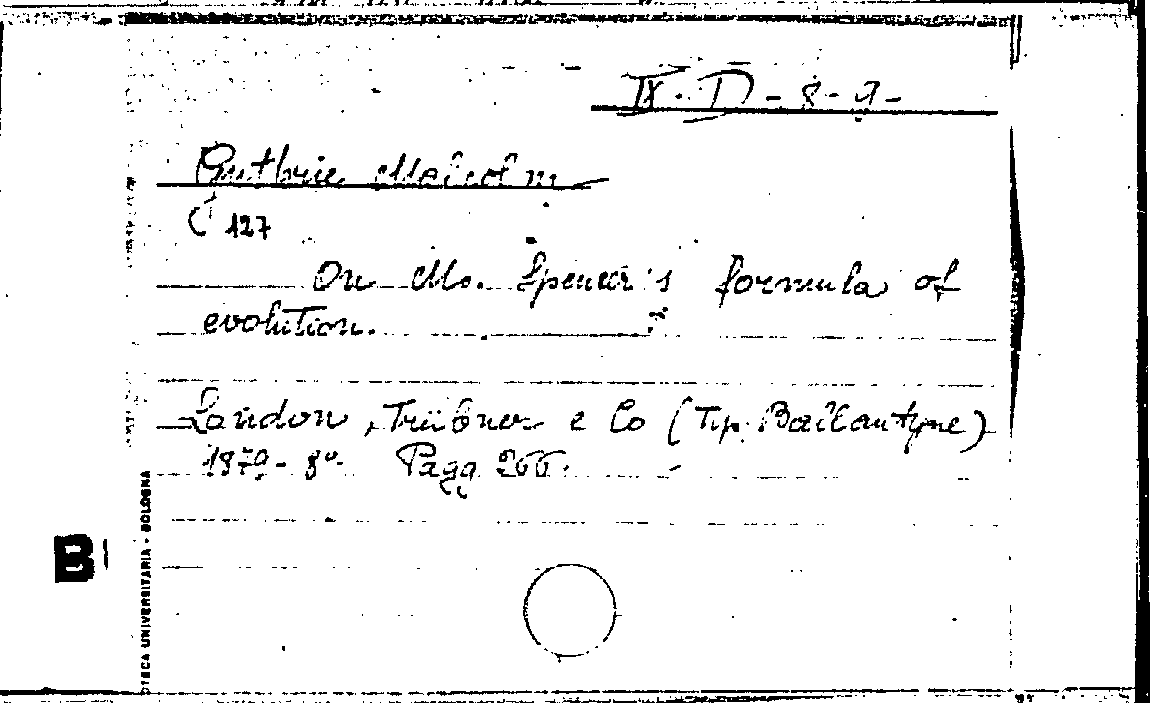 IX. D - 8 - 9 -
Guthrie Malcolm
127
On Mr. Spencer's formula of
evolution.
London, Trübner e Co (Tip. Ballantyne)
1879 - 8°. Pagg 266.
B
OTECA UNIVERSITARIA - BOLOGNA